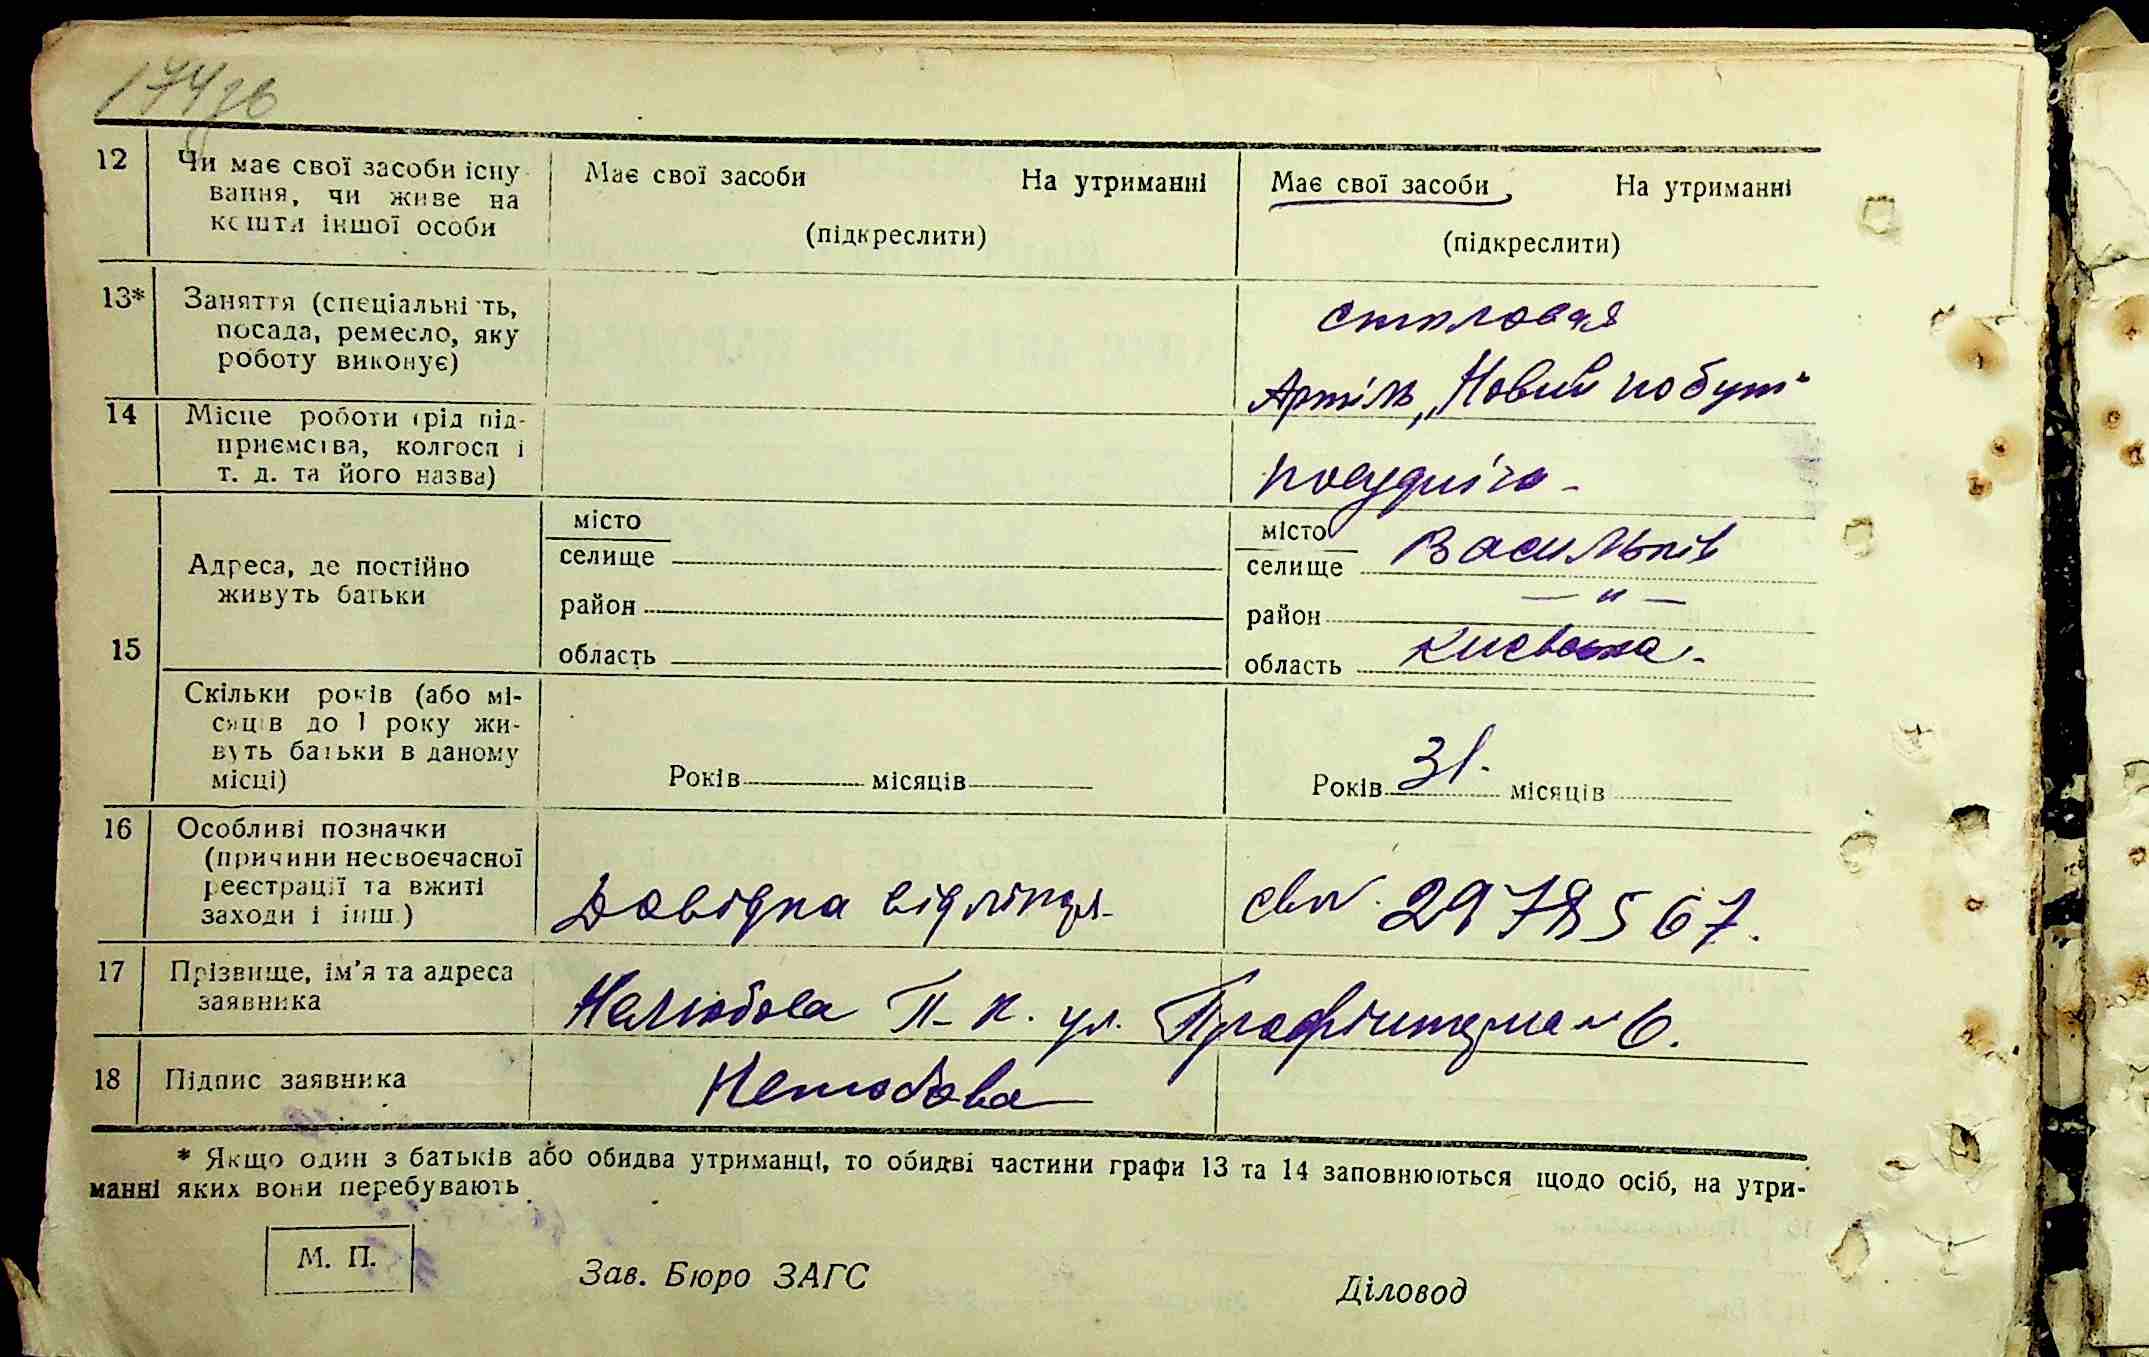 174зв
12 Чи має свої засоби існу- Має свої засоби На утриманні Має свої засоби На утриманні
вання, чи живе на
кошти іншої особи (підкреслити) (підкреслити)
13* Заняття (спеціальність, столовая
посада, ремесло, яку
роботу виконує) Артіль „Новий побут"
14 Місце роботи (рід під-
приємства, колгосп і
т. д. та його назва) посудніца
місто місто Васильків
селище селище
Адреса, де постійно
живуть батьки
район район — " —
15
область область Києвська
Скільки років (або мі-
сяців до 1 року жи-
вуть батьки в даному
місці) Років місяців Років 31. місяців
16 Особливі позначки
(причини несвоєчасної
реєстрації та вжиті
заходи і інш.) Довідка від лікаря. 2978567.
17 Прізвище, ім'я та адреса
заявника Нелюбова П. К. ул. Профінтерна № 6.
18 Підпис заявника Нелюбова
* Якщо один з батьків або обидва утриманці, то обидві частини графи 13 та 14 заповнюються щодо осіб, на утри-
манні яких вони перебувають
М. П. Зав. Бюро ЗАГС Діловод